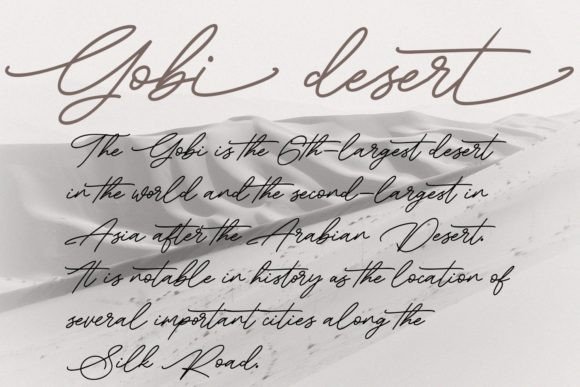 Gobi desert
The Gobi is the 6th-largest desert
in the world and the second-largest in
Asia after the Arabian Desert.
It is notable in history as the location of
several important cities along the
Silk Road.